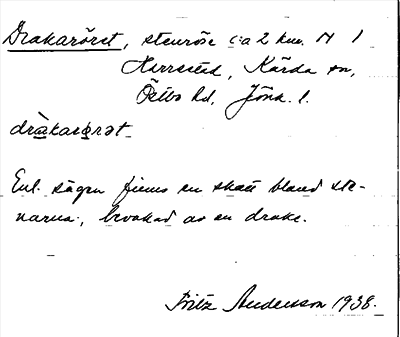 Drakaröret, stenröse c:a 2 km. N 1
Herrestad, Kärda sn,
Östbo hd, Jönk. l.
Enl. sägen finns en skatt bland ste-
narna, bevakad av en drake.
Fritz Andersson 1938.